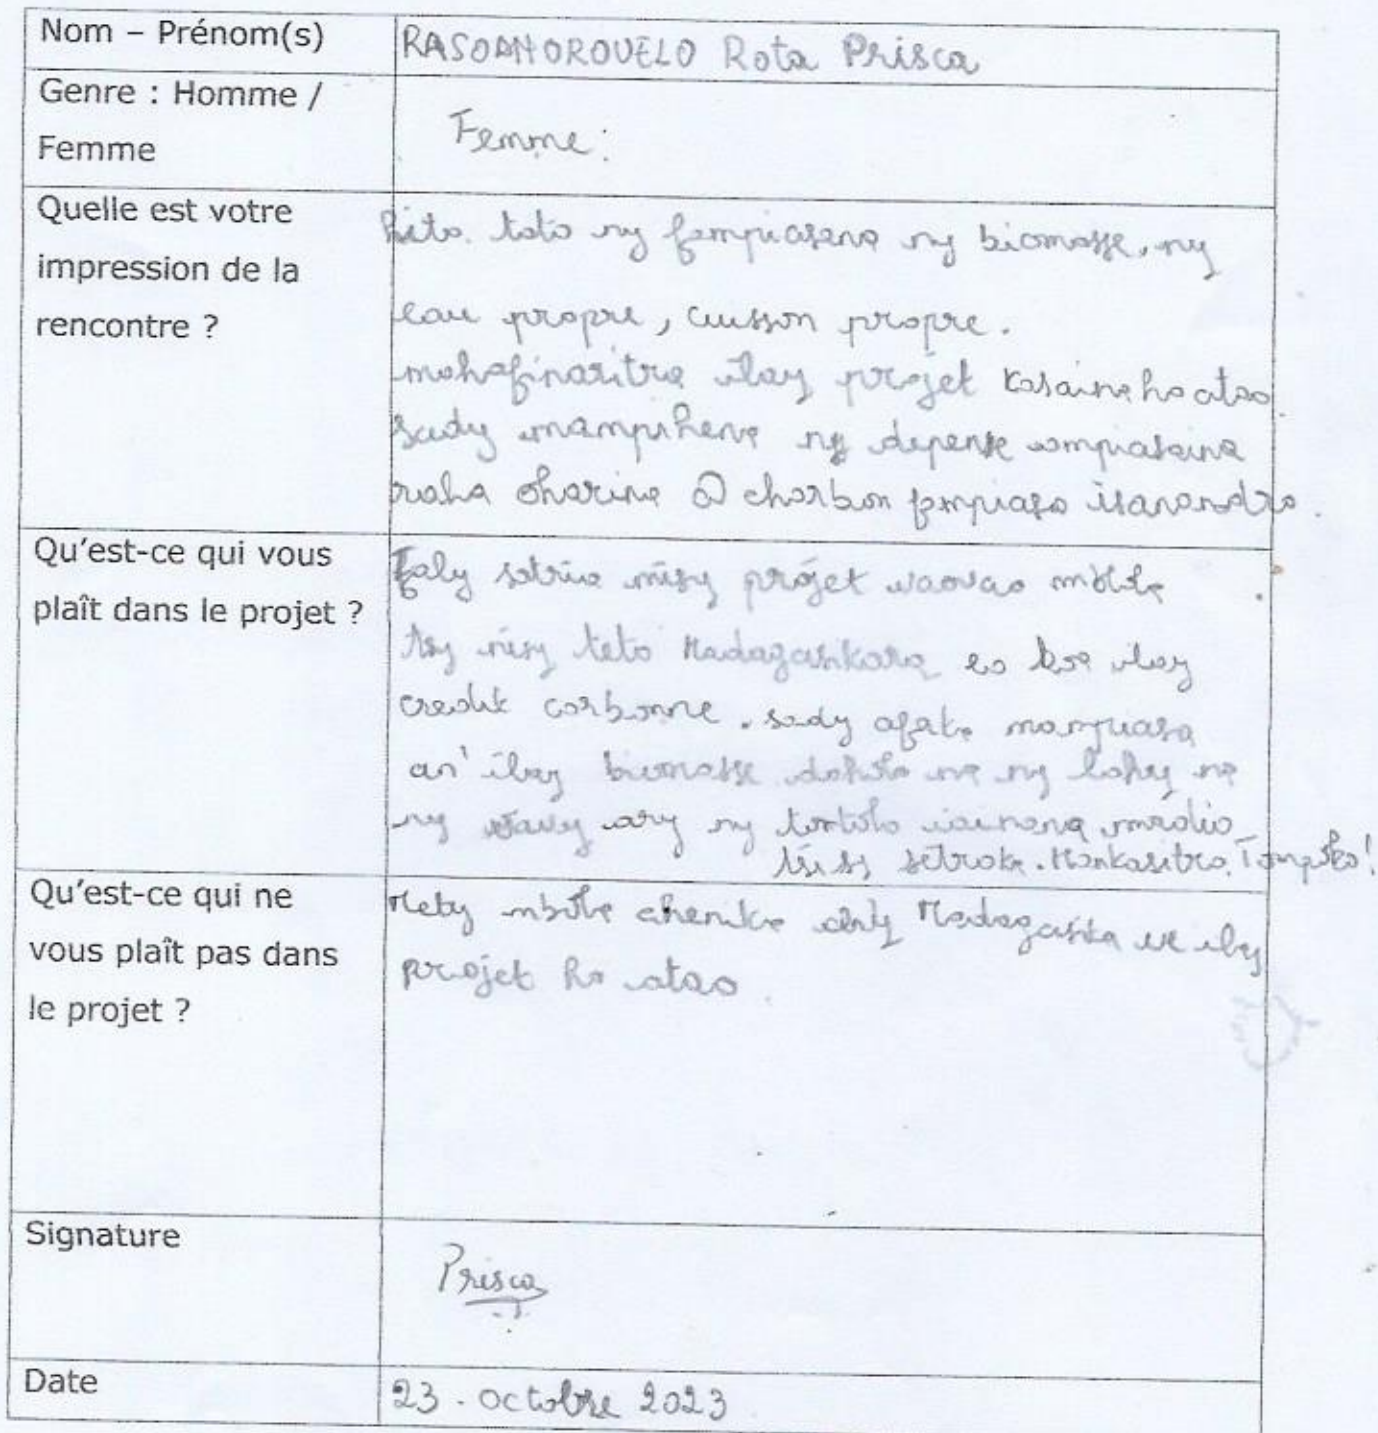 Nom – Prénom(s)
RASOAHOROVELO Rota Prisca
Genre : Homme /
Femme
Femme :
Quelle est votre
impression de la
rencontre ?
hita toto ny fampiasana ny biomasse, ny
eau propre, cuisson propre.
mahafinaritra ilay projet kasaina ho atao
sady mampihena ny depense ampiasaina
raha oharina @ charbon fampiasa isanandro.
Qu'est-ce qui vous
plaît dans le projet ?
Faly satria misy projet vaovao mbola
tsy nisy teto Madagasikara eo koa ilay
credit carbonne. sady afaka mampiasa
an' ilay biomasse daholo na ny lahy na
ny vavy ary ny tontolo iainana madio
tsisy setroka. Mankasitra Tompoko!
Qu'est-ce qui ne
vous plaît pas dans
le projet ?
Mety mbola Madagasika ve ilay
projet ho atao.
Signature
Prisca
Date
23 - octobre 2023